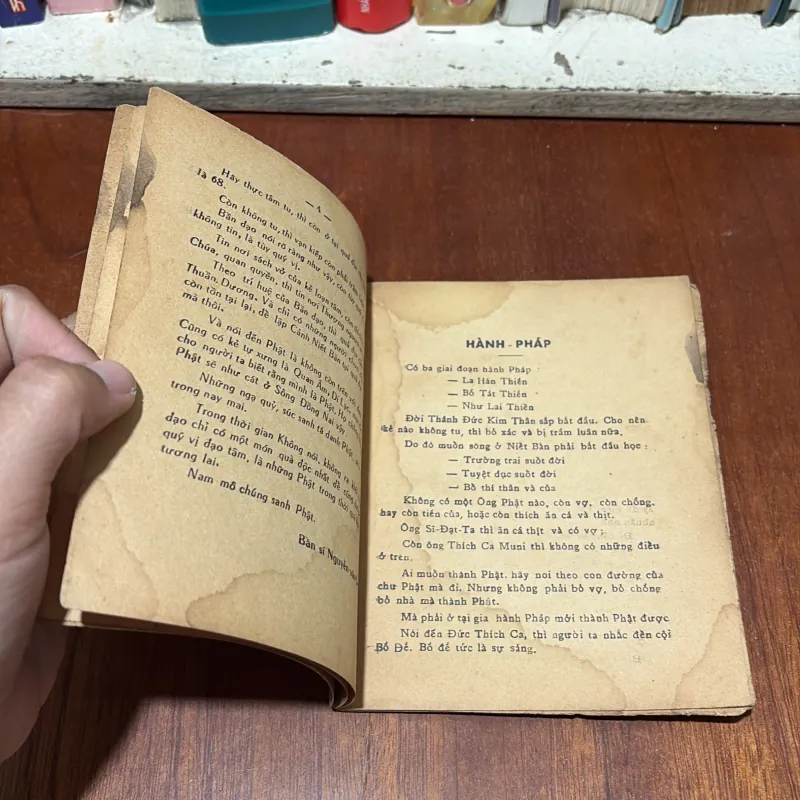 — 4 —
Hãy thực tâm tu, thì còn ở tại quả địa
là 68.
Còn không tu, thì vạn kiếp còn phải trầm
Bần đạo nói rõ ràng như vậy, còn
không tin, là tùy quý vị.
Tin nơi sách vở của kẻ loạn tâm, còn
Chúa, quan quyền, thì tin nơi Thượng nguơn
Theo trí huệ của Bần đạo, thì quả
Thuần, Dương. Và chỉ có những người
còn tồn tại lại, để lập Cảnh Niết Bàn tại
mà thôi.
Và nói đến Phật là không còn trên
Cũng có kẻ tự xưng là Quan Âm, Di Lạc,
cho người ta biết rằng mình là Phật. Họ
Phật sẽ như cát ở Sông Đồng Nai vậy.
Những ngạ quỷ, súc sanh tá danh Phật,
trong nay mai.
Trong thời gian Không nói, không ra khỏi
đạo chỉ có một món quà độc nhất để cúng
quý vị đạo tâm, là những Phật trong thời
tương lai.
Nam mô chúng sanh Phật.
Bần sĩ Nguyễn
HÀNH - PHÁP
Có ba giai đoạn hành Pháp :
— La Hán Thiền
— Bồ Tát Thiền
— Như Lai Thiền
Đời Thánh Đức Kim Thân sắp bắt đầu. Cho nên
kẻ nào không tu, thì bỏ xác và bị trầm luân nữa.
Do đó muốn sống ở Niết Bàn phải bắt đầu học :
— Trường trai suốt đời
— Tuyệt dục suốt đời
— Bố thí thân và của
Không có một Ông Phật nào, còn vợ, còn chồng,
hay còn tiền của, hoặc còn thích ăn cá và thịt.
Ông Sĩ-Đạt-Ta thì ăn cá thịt và có vợ ;
Còn ông Thích Ca Muni thì không có những điều
ở trên.
Ai muốn thành Phật. hãy noi theo con đường của
chư Phật mà đi. Nhưng không phải bỏ vợ, bỏ chồng
bỏ nhà mà thành Phật.
Mà phải ở tại gia hành Pháp mới thành Phật được
Nói đến Đức Thích Ca, thì người ta nhắc đến cội
Bồ Đề. Bồ đề tức là sự sáng.